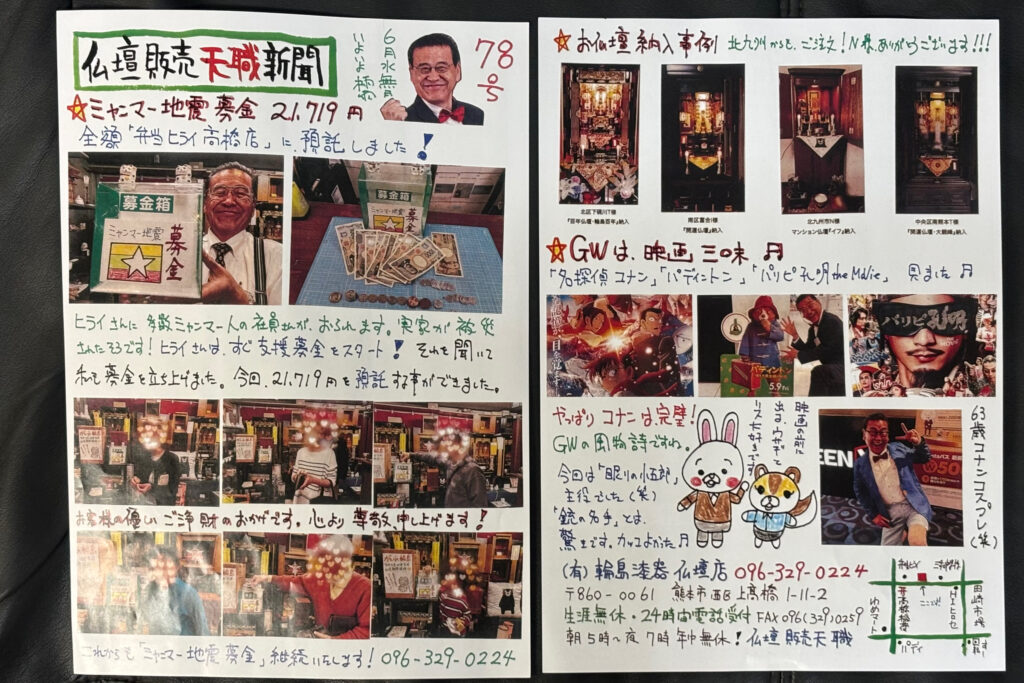 仏壇販売天職新聞
6月水無月
いよいよ梅雨
78号
ミャンマー地震募金 21,719円
全額「弁当ヒライ高橋店」に、預託しました!
募金箱
ミャンマー地震
募金
募金箱
ミャンマー地震
募金
ヒライさんに多数ミャンマー人の社員さんが、おられます。実家が被災
されたそうです!ヒライさんは、すぐ支援募金をスタート!それを聞いて
私も募金を立ち上げました。今回、21,719円を預託する事ができました。
お客様の優しいご浄財のおかげです。心より尊敬申し上げます!
これからも「ミャンマー地震募金」継続いたします!096-329-0224
お仏壇納入事例 北九州からも、ご注文!N様、ありがとうございます!!!
北区下硯川T様
『百年仏壇・輪島百年』納入
南区富合I様
『開運仏壇』納入
北九州市N様
マンション仏壇『イフ』納入
中央区南熊本T様
『開運仏壇・大龍輝』納入
GWは、映画三昧♬
「名探偵コナン」「パディントン」「パリピ孔明 the Movie」見ました♬
パディントン
5.9
パリピ孔明
やっぱりコナンは完璧!
GWの風物詩ですね。
今回は「眠りの小五郎」
主役でした(笑)
「銃の名手」とは、
驚きです。カッコよかった♬
映画の前に
出る、ウサギと
リス大好きです
63歳コナンコスプレ(笑)
(有)輪島漆器仏壇店 096-329-0224
〒860-0061 熊本市西区上高橋1-11-2
生涯無休・24時間電話受付 FAX096(329)0259
朝5時〜夜7時 年中無休!仏壇販売天職
ここだよ
田崎市場
ゆめマート